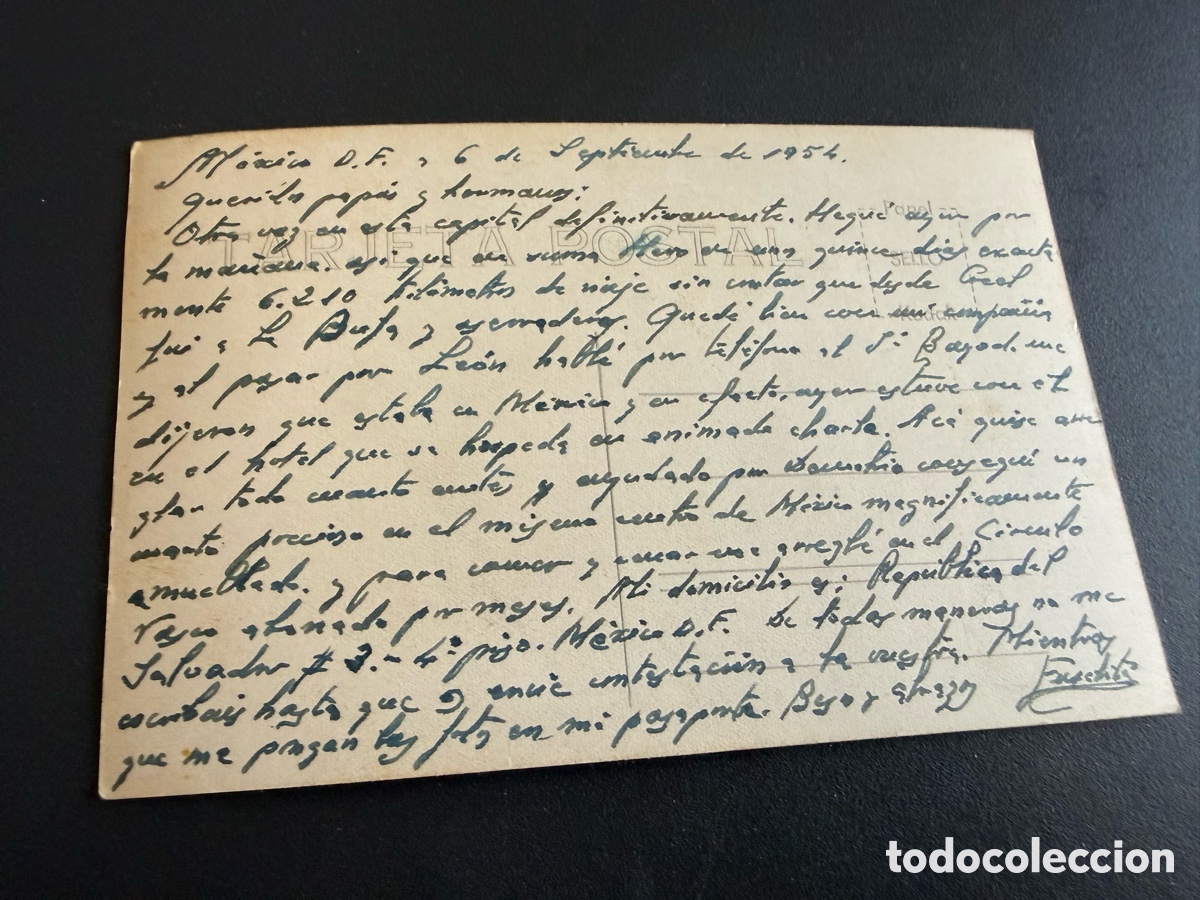 México D.F. a 6 de Septiembre de 1954.
Queridos papás y hermanos:
Otra vez en esta capital definitivamente. Llegué ayer por
la mañana. así que en suma llevo en unos quince días exacta
mente 6.210 kilómetros de viaje sin contar que desde Creel
fui a La Bufa y aserraderos. Quedé bien con mi compañía
y al pasar por León hablé por teléfono al Sr. me
dijeron que estaba en México y en efecto, ayer estuve con él
en el hotel que se hospeda en animada charla. Acá quise arre
glar todo cuanto antes y ayudado por Demetrio conseguí un
cuarto precioso en el mismo centro de México magníficamente
amueblado. y para comer y cenar me arreglé en el Círculo
Vasco abonado por meses. Mi domicilio es: República del
Salvador # 3.- 4º piso. México D.F. De todas maneras no me
escribáis hasta que envíe contestación a la vuestra. Mientras
que me pongan las fotos en mi pasaporte. Besos y abrazos
TARJETA POSTAL
SELLO
todocoleccion